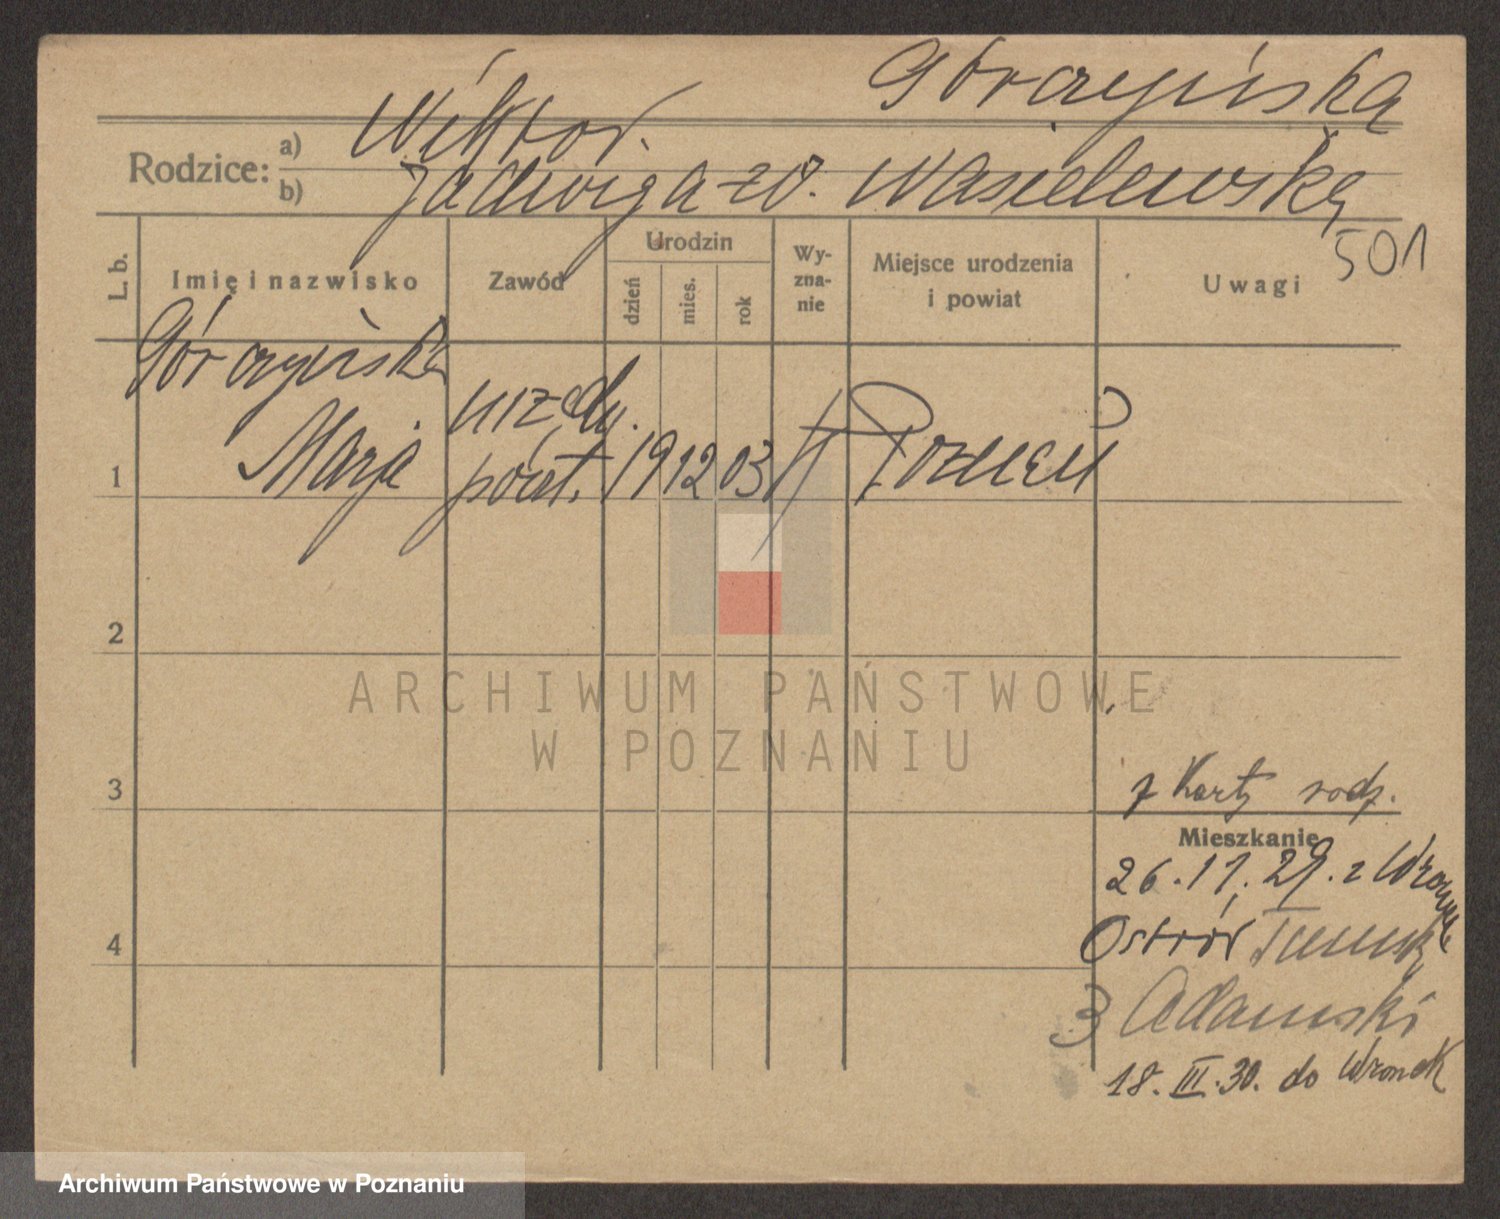 Górczyńska
Rodzice: a) Wiktor.
b) Jadwiga zd. Wasielewska
501
L. b.
Imię i nazwisko
Zawód
Urodzin
dzień
mies.
rok
Wy-
zna-
nie
Miejsce urodzenia
i powiat
Uwagi
Górczyńska
Marja
urzędn.
poczt.
19 12 03
Poznań
1
2
3
4
ARCHIWUM PAŃSTWOWE
W POZNANIU
z Karty rodz.
Mieszkanie
26.11.29. z Wronek
Ostrów Tumski
3 Adamski
18.III.30. do Wronek
Archiwum Państwowe w Poznaniu